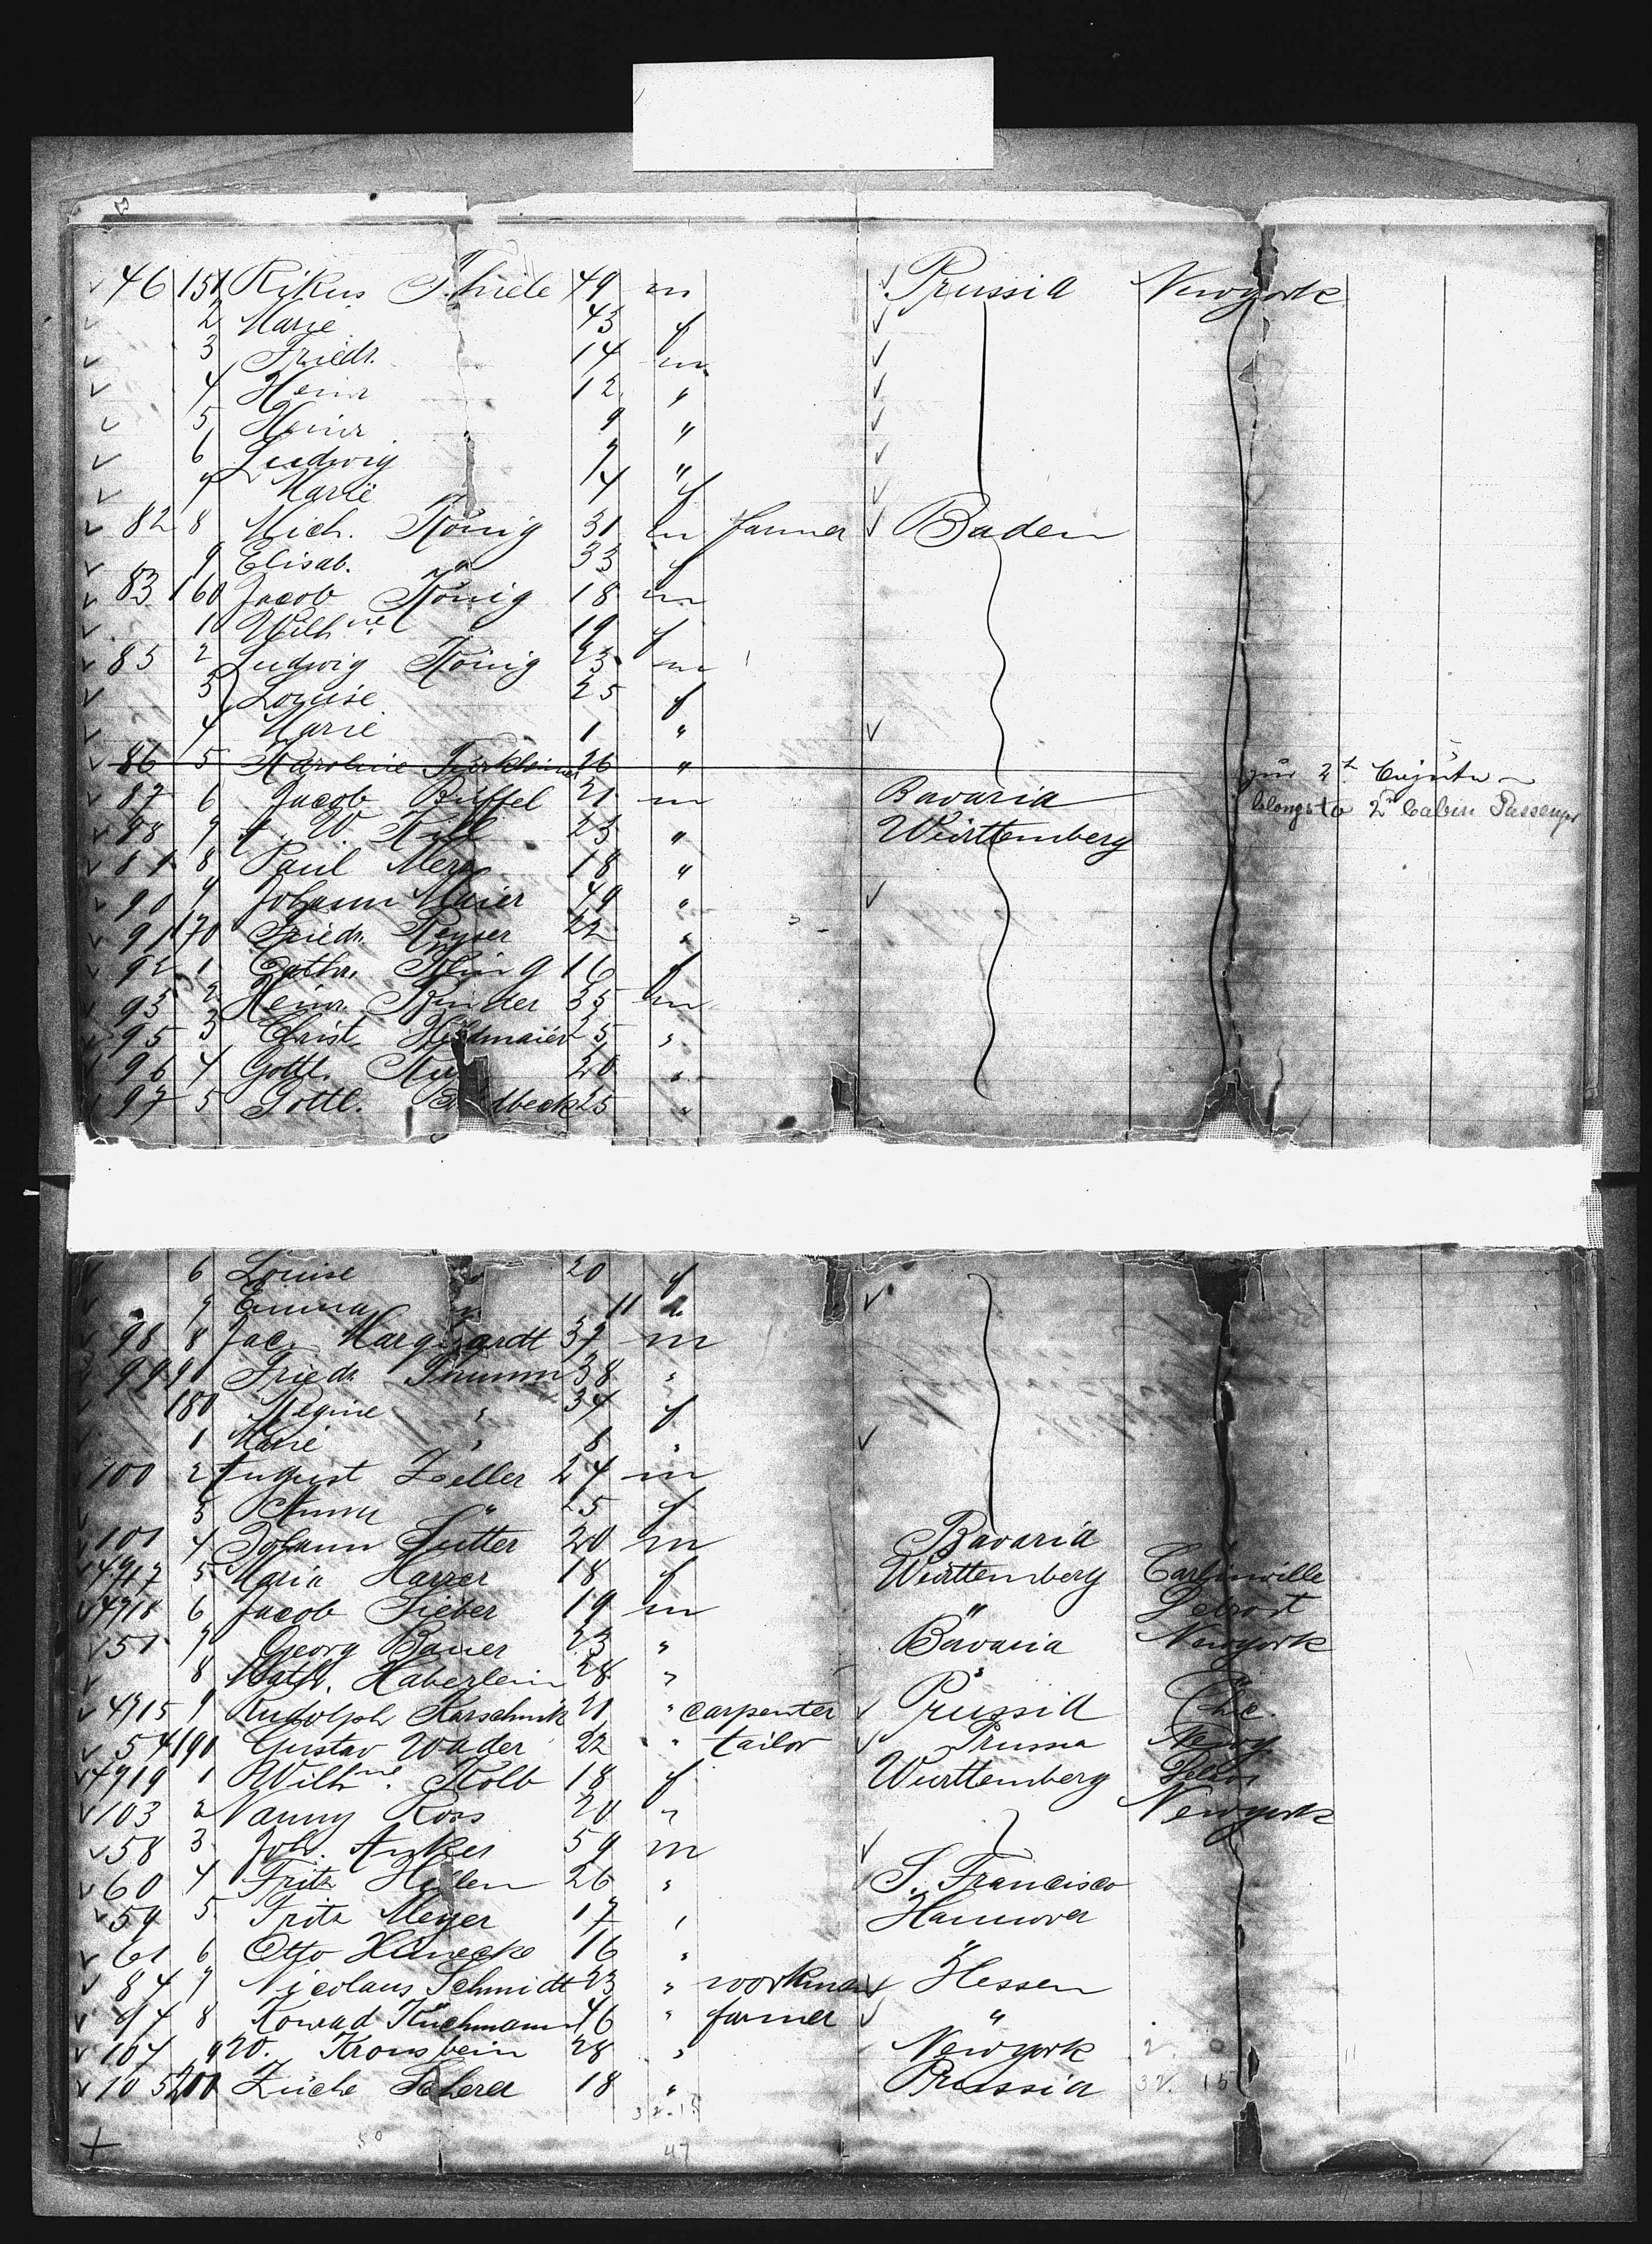 46 151 Rikus Thiele 49 m Prussia Newyork
2 Marie 43 f
3 Friedr. 14 m
4 Heinr 12 "
5 Heinr 9 "
6 Ludwig 7 "
7 Marie 4 f
82 8 Mich. König 31 m farmer Baden
9 Elisab. " 33 f
83 160 Jacob König 18 m
1 Wilhne 19 f
85 2 Ludwig König 23 m
3 Louise 25 f
4 Marie 1 "
86 5 Karoline 26 " zur 2t
87 6 Jacob Büffel 21 m Bavaria belongs to 2n Cabin Passenger
88 7 W. 23 " Württemberg
8 Paul 18 "
90 9 Johann Maier 49 "
91 170 Friedr. Keyser 22 "
92 1 Cathr. Kling 16 f
93 2 Heinr. Binder 35 m
95 3 Christ. 25 "
96 4 Gottl. 20 "
97 5 Gottl. 25 "
6 Louise 20 f
7 Emma " 11
98 8 Jac. Marquardt 37 m
99 9 Friedr. Thumm 38 "
180 Regine " 34 f
1 Marie " 8 "
100 2 August Zeller 24 m
3 Anna " 25 f
101 4 Johann Sutter 20 m Bavaria
4717 5 Maria Harrer 18 f Württemberg Carlinville
4718 6 Jacob Sieber 19 m " Detroit
51 7 Georg Bauer 23 " Bavaria Newyork
8 Math. Haberlein 28 " "
4715 9 Rudolph 21 " carpenter Prussia Chic.
54 190 Gustav Wader 22 " tailor Prussia Newy
4719 1 Wilhne. Kolb 18 f Württemberg
103 2 Nanny Ross 20 " Newyork
58 3 Joh. Anker 59 m
60 4 Fritz 26 " S. Francisco
59 5 Fritz Meyer 17 " Hannover
61 6 Otto 16 " "
84 7 Nicolaus Schmidt 23 " workman Hessen
94 8 Konrad Küchmann 46 " farmer "
104 9 Kronsbein 28 " Newyork
105 200 Scherer 18 " Prussia 32. 15
32.15
50 47